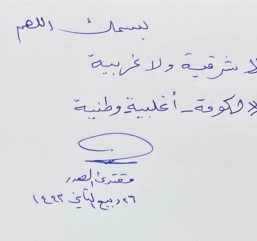 بسمك اللهم
لا شرقية ولا غربية
الحكومة - أغلبية وطنية
مقتدى الصدر
٢٦ ربيع الثاني ١٤٤٣